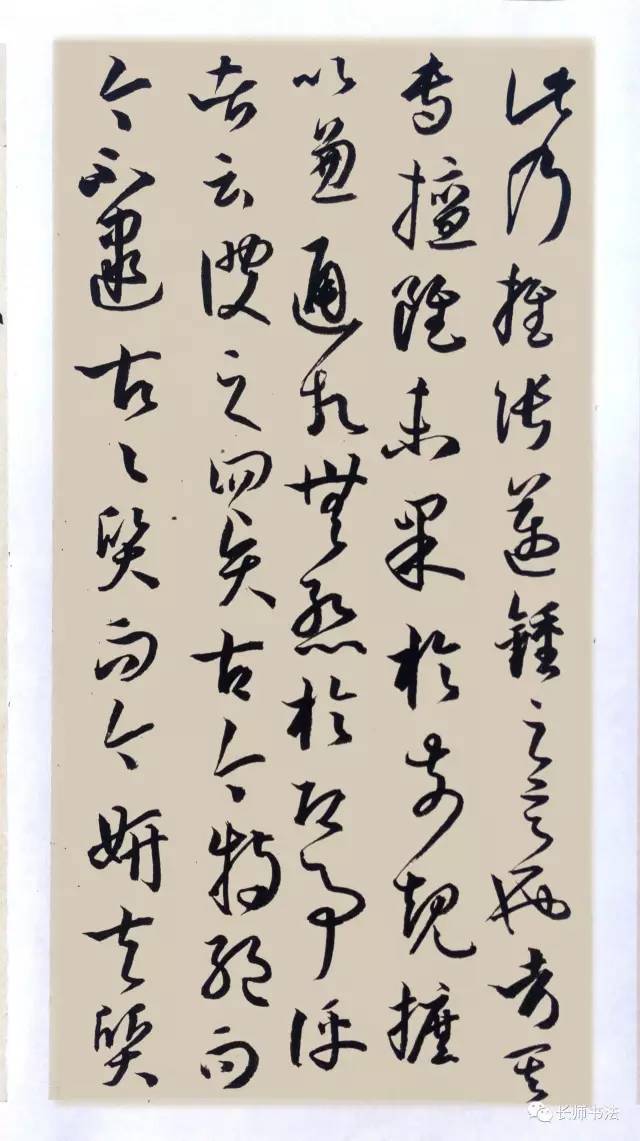 此乃推張邁鍾之意也考其
專擅雖未果於前規摭
以兼通故無慙於即事評
者云彼之四賢古今特絕而
今不逮古〻質而今妍夫質
长师书法